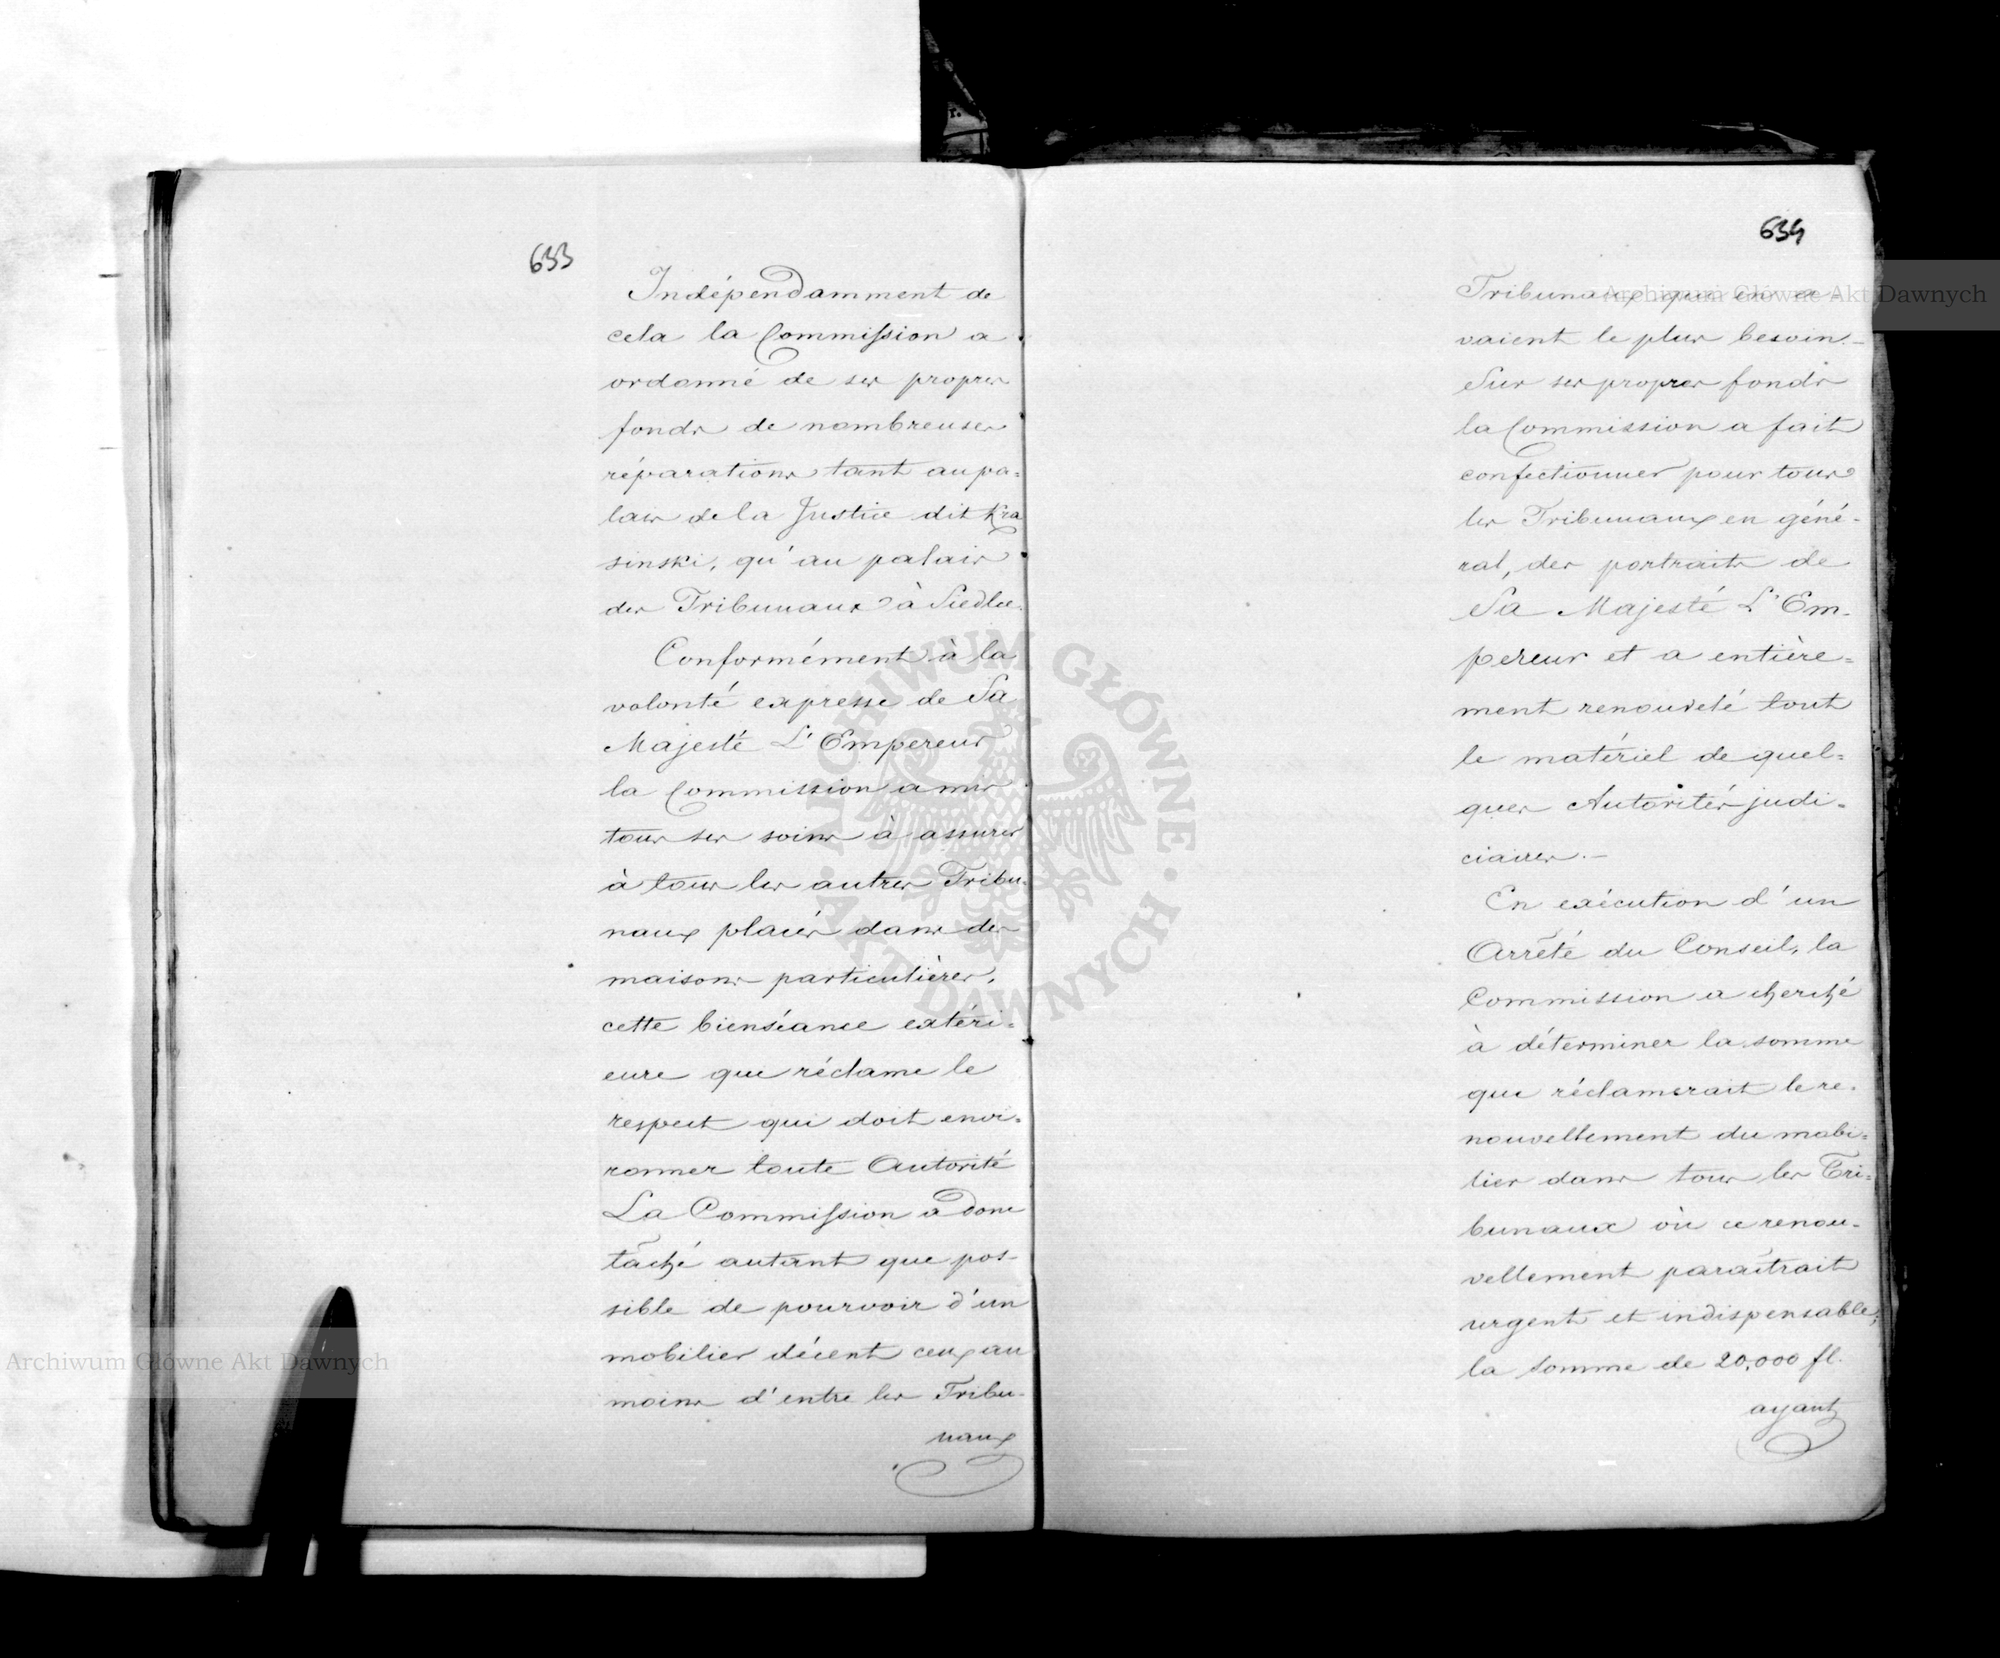 633
Indépendamment de
cela la Commission a
ordonné de ses propres
fonds de nombreuses
réparations tant au pa=
lais de la Justice dit Kra
sinski, qu'au palais
des Tribunaux à Siedlce.
Conformément à la
volonté expresse de Sa
Majesté L'Empereur
la Commission a mis
tous ses soins à assurer
à tous les autres Tribu=
naux placés dans des
maisons particulières,
cette bienséance extéri=
eure que réclame le
respect qui doit envi=
ronner toute Autorité
La Commission a donc
tâché autant que pos-
sible de pourvoir d'un
mobilier décent ceux au
moins d'entre les Tribu-
naux
634
Tribunaux qui en a-
vaient le plus besoin.-
Sur ses propres fonds
la Commission a fait
confectionner pour tous
les Tribunaux en géné-
ral, des portraits de
Sa Majesté L'Em-
pereur et a entière=
ment renouvelé tout
le matériel de quel=
ques Autorités judi=
ciaires.-
En exécution d'un
Arrêté du Conseil, la
Commission a cherché
à déterminer la somme
que réclamerait le re-
nouvellement du mobi=
lier dans tous les Tri=
bunaux où ce renou-
vellement paraîtrait
urgent et indispensable;
la somme de 20,000 fl.
ayant
Archiwum Główne Akt Dawnych
Archiwum Główne Akt Dawnych
ARCHIWUM GŁÓWNE · AKT DAWNYCH ·